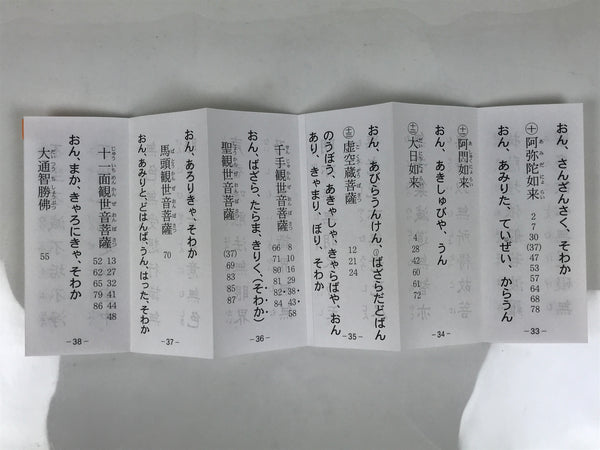 おん、さんざんさく、そわか
⑩阿弥陀如来 2 7 30 (37) 47 53 57 64 68 78
おん、あみりた、ていぜい、からうん
-33-
⑪阿閦如来
おん、あきしゅびや、うん
⑫大日如来 4 28 42 60 61 72
-34-
おん、あびらうんけん、ばざらだどばん
⑬虚空蔵菩薩 12 21 24
のうぼう、あきゃしゃ、きゃらばや、おん
あり、きゃまり、ぼり、そわか
-35-
千手観世音菩薩 8 10 16 29 38・43・58
66 71 80 81 82・84
おん、ばざら、たらま、きりく、(そわか)
聖観世音菩薩 (37) 69 83 85 87
-36-
おん、あろりきゃ、そわか
馬頭観世音菩薩 70
おん、あみりと、どはんば、うん、はった、そわか
-37-
十一面観世音菩薩 13 27 32 41 44 48
52 62 65 79 86
おん、まか、きゃろにきゃ、そわか
大通智勝佛 55
-38-